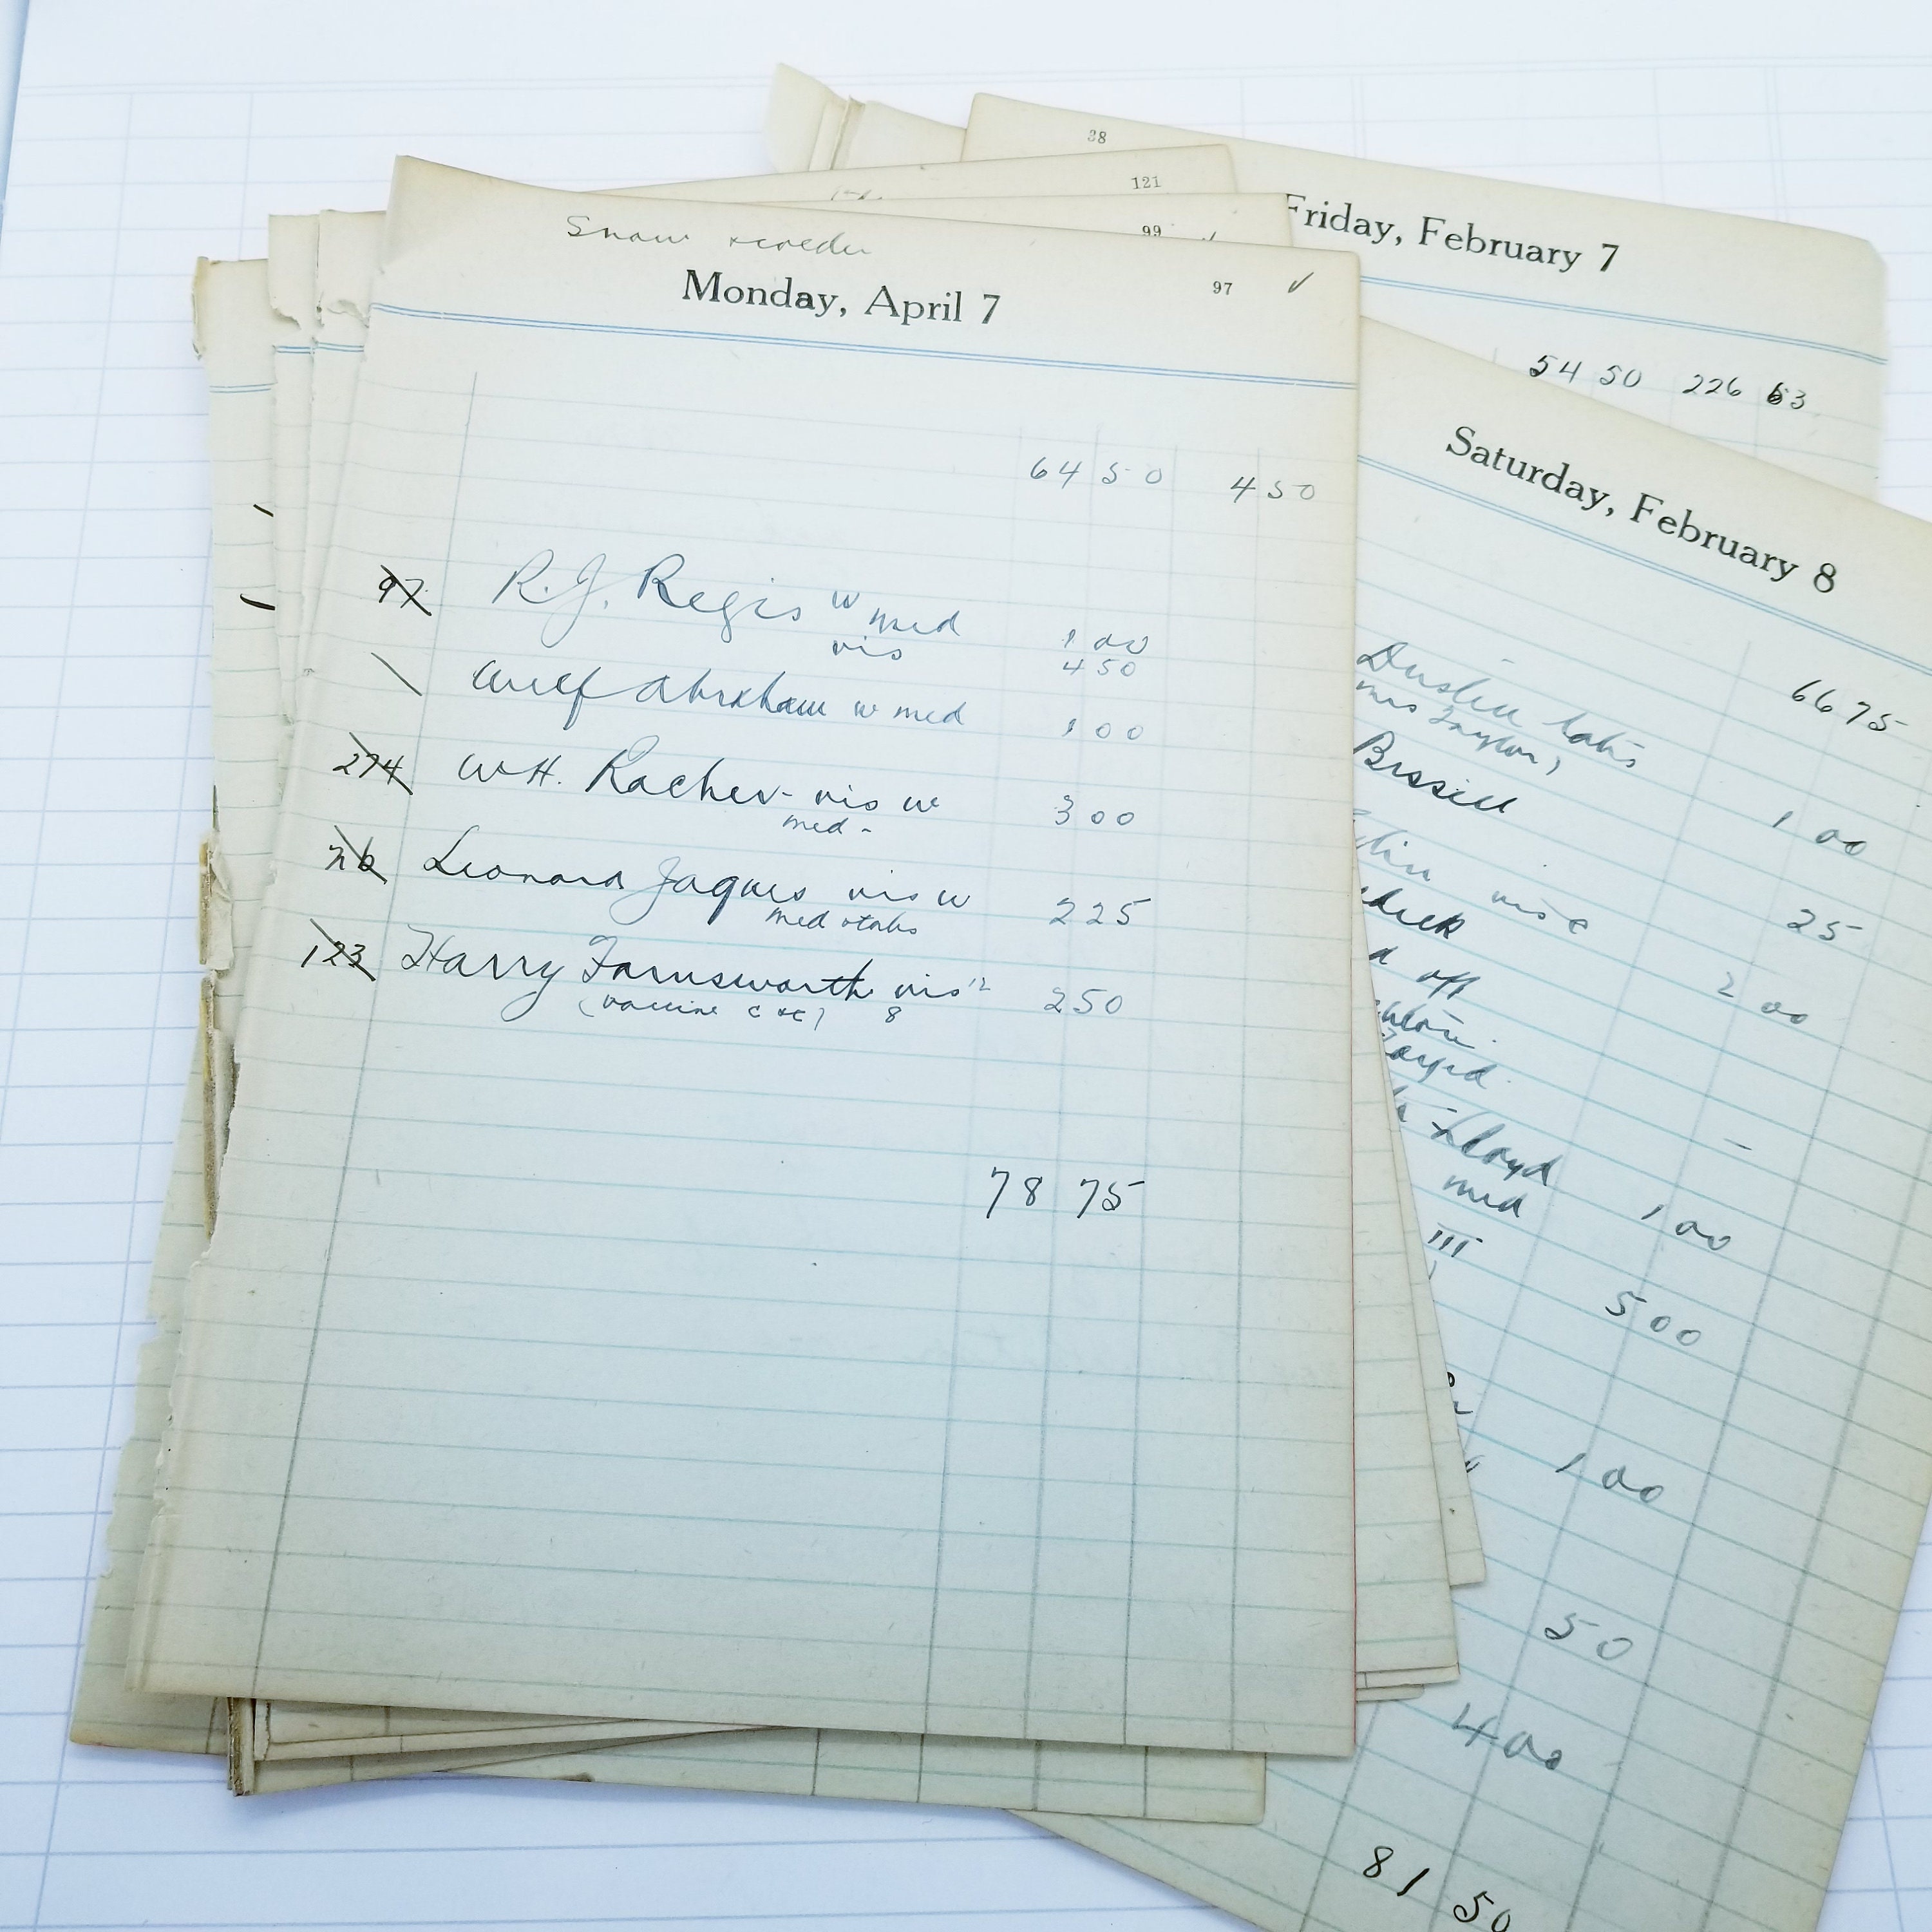 38
Friday, February 7
54 50 226 63
121
99
Snow
Monday, April 7 97 ✓
64 50 4 50
97 R.J. Regis w med 1 00
vis 4 50
Abraham w med 1 00
274 W.H. Racher - vis w 3 00
med -
76 Leonard Jaques vis w 2 25
med tabs
123 Harry Farnsworth vis 12 2 50
(vaccine c ) 8
78 75
Saturday, February 8
66 75
Mrs Taylor)
Bissill 1 00
vis c 25
2 00
off
Lloyd
med 1 00
III
5 00
1 00
50
4 00
81 50